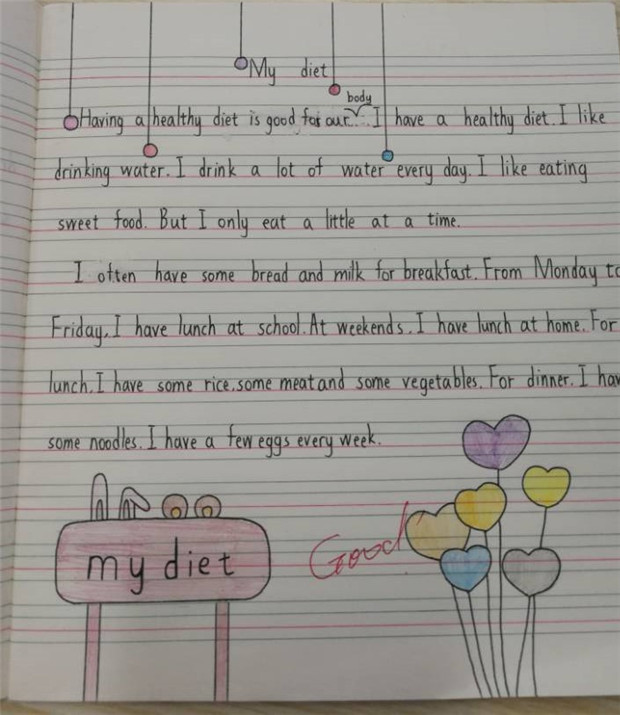 My diet
body
Having a healthy diet is good for our I have a healthy diet. I like
drinking water. I drink a lot of water every day. I like eating
sweet food. But I only eat a little at a time.
I often have some bread and milk for breakfast. From Monday to
Friday, I have lunch at school. At weekends, I have lunch at home. For
lunch, I have some rice, some meat and some vegetables. For dinner, I hav
some noodles. I have a few eggs every week.
my diet
Good!